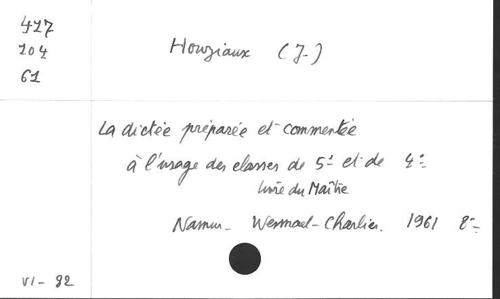 417
104
61
Houziaux (J.)
La dictée préparée et commentée
à l'usage des classes de 5e et de 4e
Livre du Maître
Namur - Wesmael-Charlier. 1961 8°
VI - 92